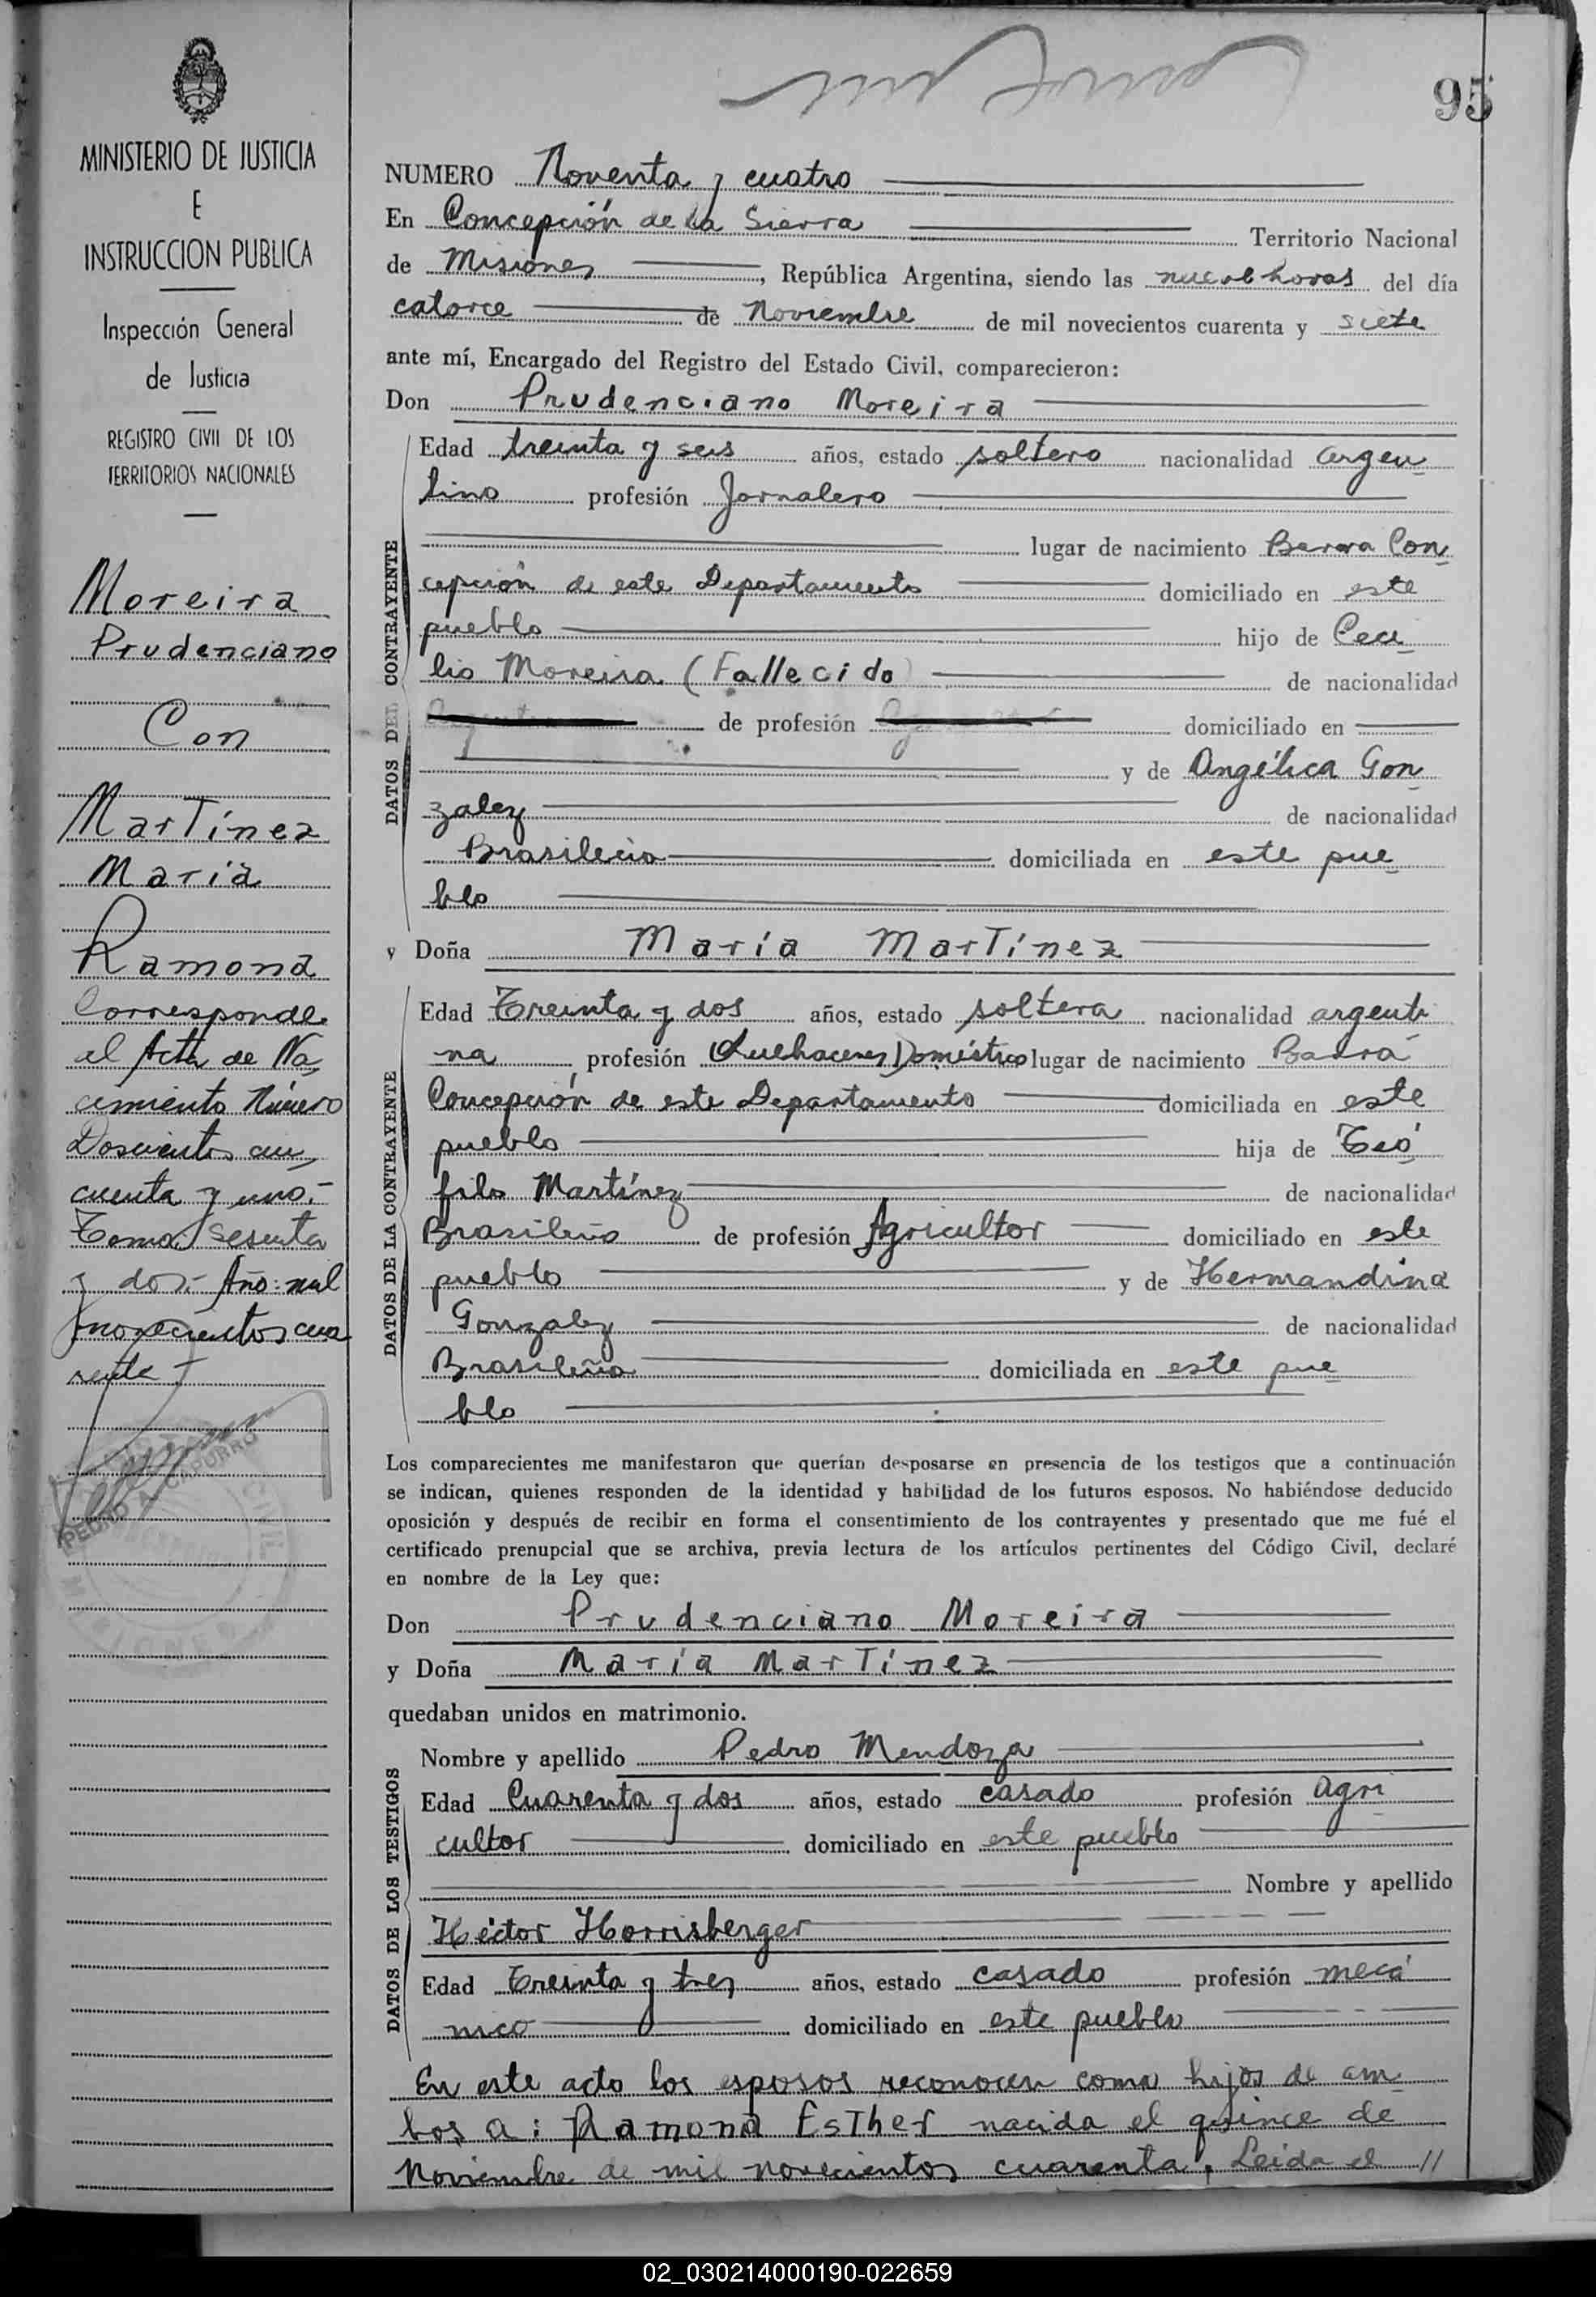 95
MINISTERIO DE JUSTICIA
E
INSTRUCCION PUBLICA
Inspección General
de Justicia
REGISTRO CIVIL DE LOS
TERRITORIOS NACIONALES
Moreira
Prudenciano
Con
Martínez
María
Ramona
Corresponde
al Acta de Na
cimiento Número
Doscientos cin
cuenta y uno.-
Tomo Sesenta
y dos.- Año: mil
novecientos cua
renta -
PEDRO A. CAPURRO
NUMERO Noventa y cuatro
En Concepción de la Sierra Territorio Nacional
de Misiones, República Argentina, siendo las nueve horas del día
catorce de Noviembre de mil novecientos cuarenta y siete
ante mí, Encargado del Registro del Estado Civil, comparecieron:
Don Prudenciano Moreira
DATOS DEL CONTRAYENTE
Edad treinta y seis años, estado soltero nacionalidad argen
tino profesión Jornalero
lugar de nacimiento Barra Con
cepción de este Departamento domiciliado en este
pueblo hijo de Ceci
lio Moreira (Fallecido) de nacionalidad
de profesión domiciliado en
y de Angélica Gon
zalez de nacionalidad
Brasileña domiciliada en este pue
blo
y Doña María Martínez
DATOS DE LA CONTRAYENTE
Edad Treinta y dos años, estado soltera nacionalidad argenti
na profesión Quehaceres Doméstico lugar de nacimiento Barra
Concepción de este Departamento domiciliada en este
pueblo hija de Teó
filo Martínez de nacionalidad
Brasileño de profesión Agricultor domiciliado en este
pueblo y de Hermandina
Gonzalez de nacionalidad
Brasileña domiciliada en este pue
blo
Los comparecientes me manifestaron que querían desposarse en presencia de los testigos que a continuación
se indican, quienes responden de la identidad y habilidad de los futuros esposos. No habiéndose deducido
oposición y después de recibir en forma el consentimiento de los contrayentes y presentado que me fué el
certificado prenupcial que se archiva, previa lectura de los artículos pertinentes del Código Civil, declaré
en nombre de la Ley que:
Don Prudenciano Moreira
y Doña María Martínez
quedaban unidos en matrimonio.
DATOS DE LOS TESTIGOS
Nombre y apellido Pedro Mendoza
Edad Cuarenta y dos años, estado casado profesión agri
cultor domiciliado en este pueblo
Nombre y apellido
Héctor Horrisberger
Edad Treinta y tres años, estado casado profesión mecá
nico domiciliado en este pueblo
En este acto los esposos reconocen como hijos de am
bos a: Ramona Esther nacida el quince de
Noviembre de mil novecientos cuarenta, Leída el //
02_030214000190-022659